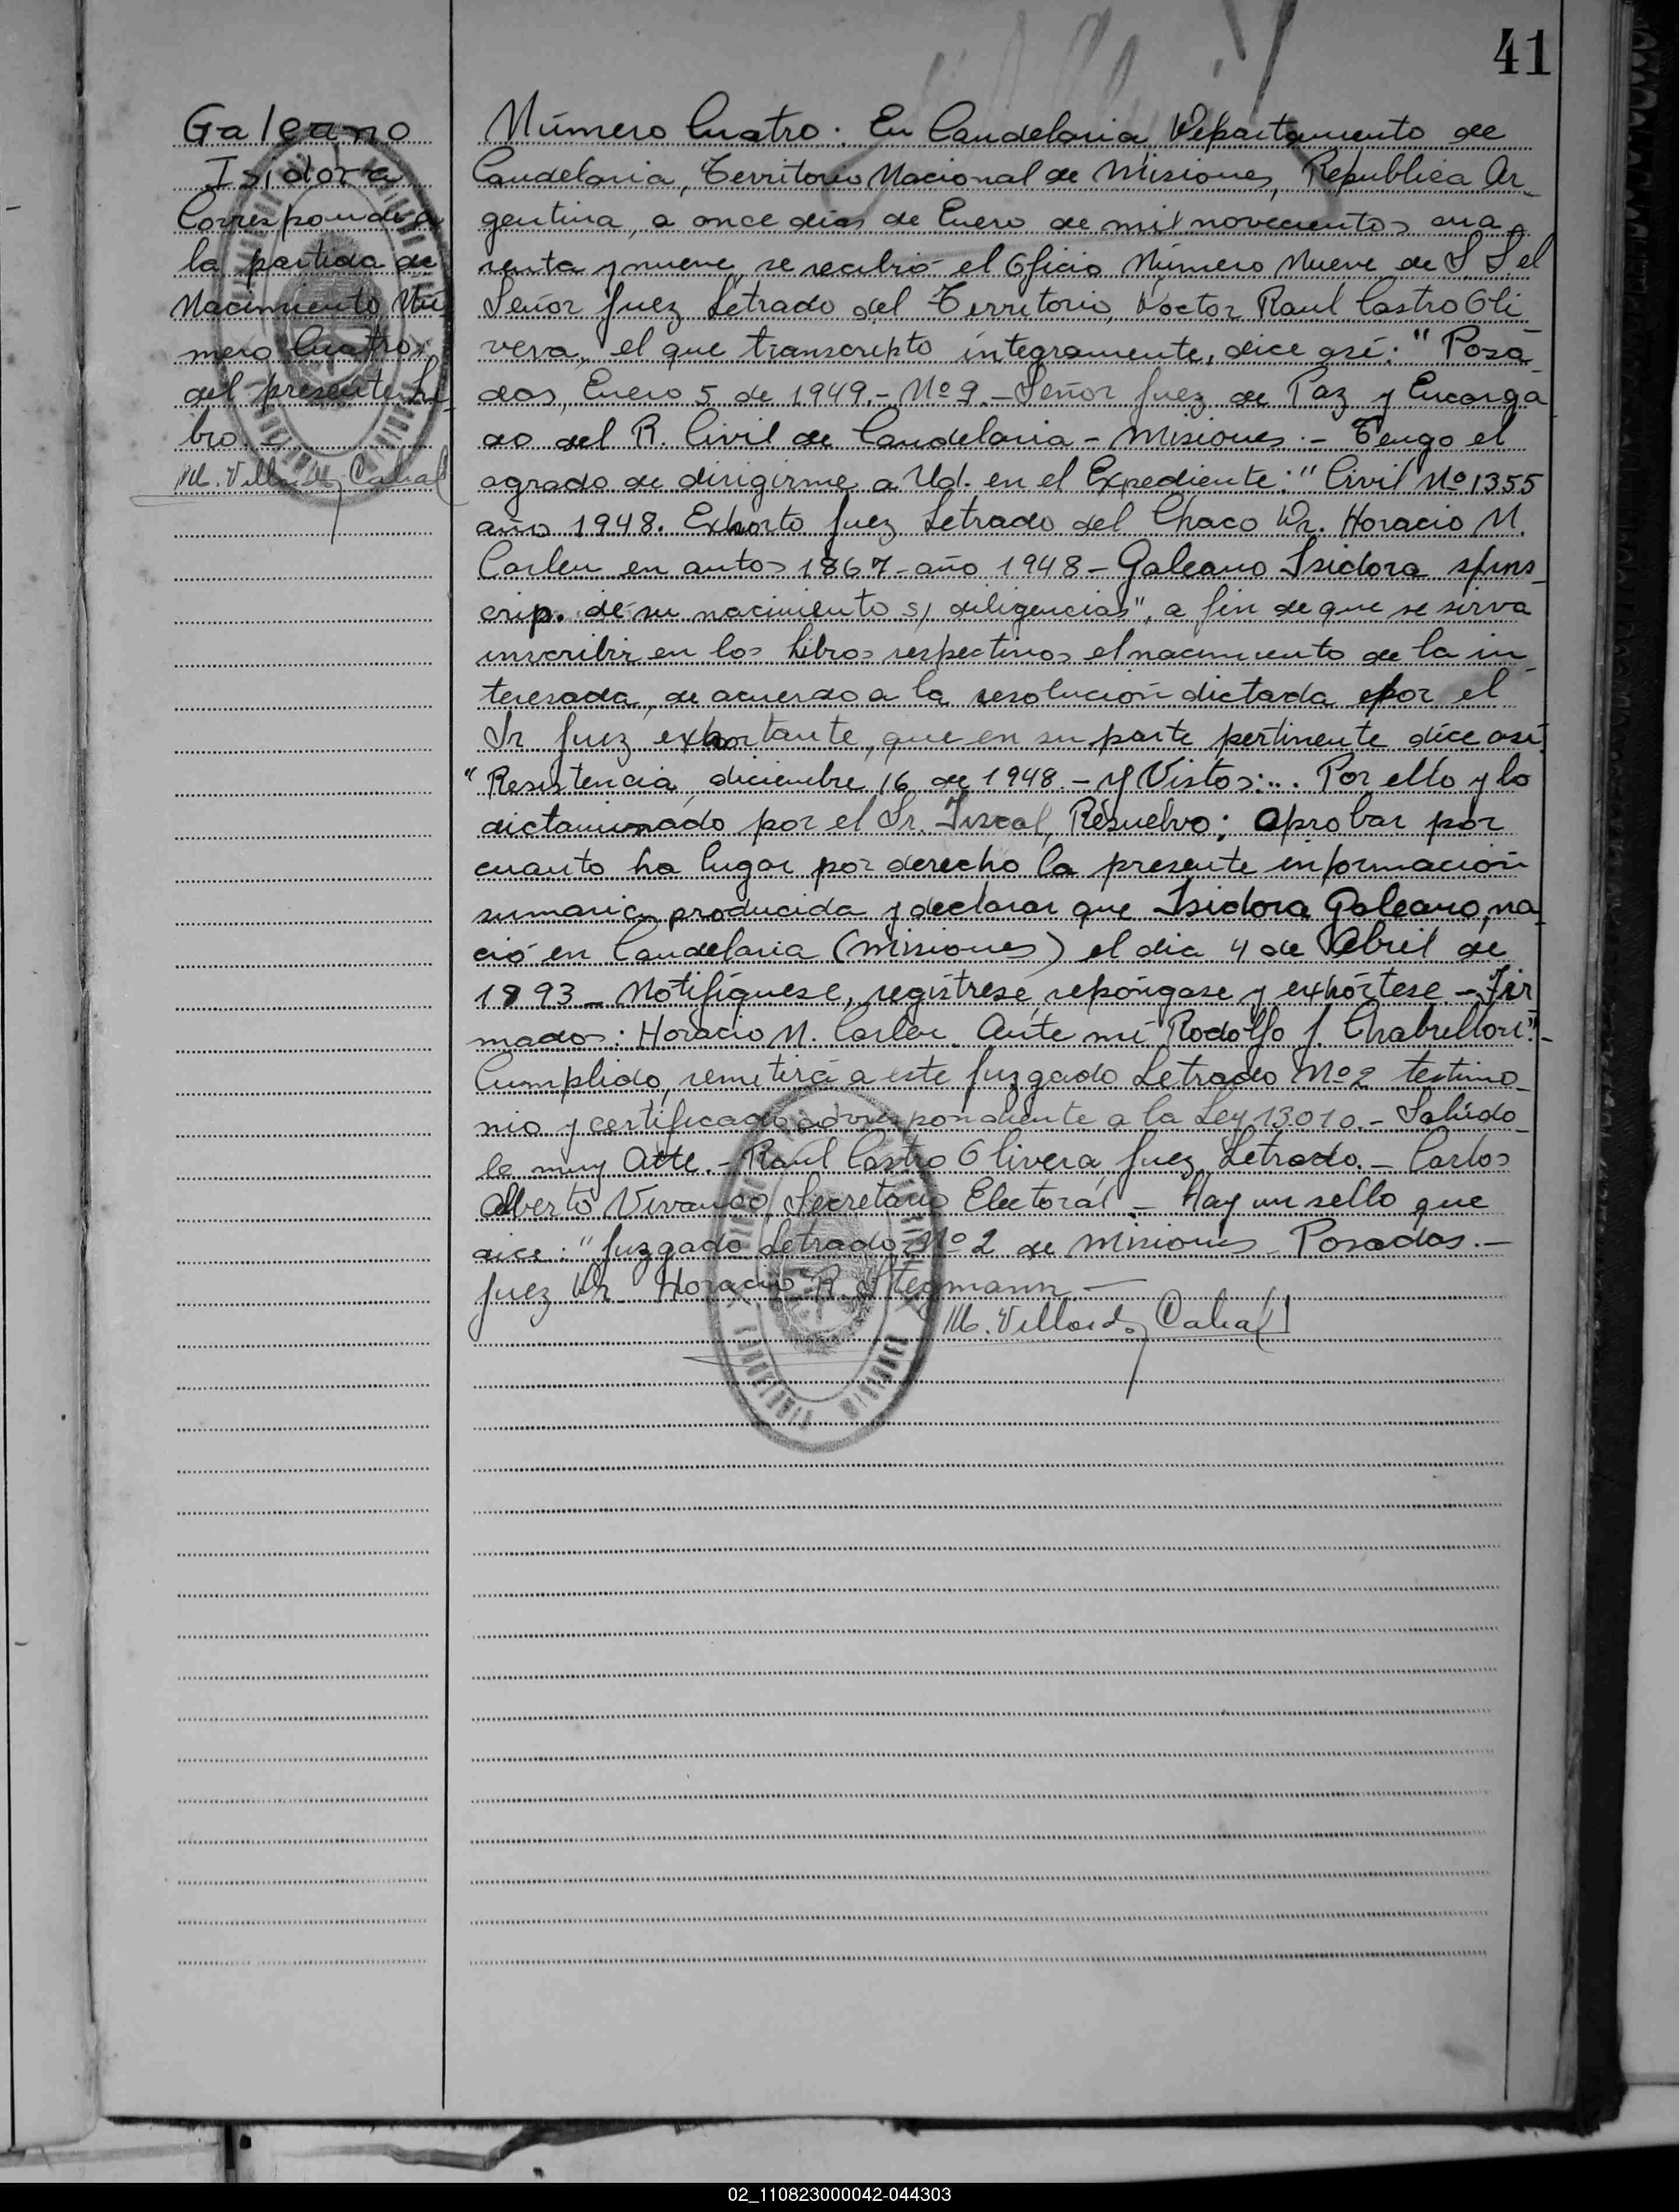 41
Galeano
Isidora
Corresponde a
la partida de
Nacimiento Nú-
mero Cuatro
del presente Li-
bro.
Número Cuatro. En Candelaria Departamento de
Candelaria, Territorio Nacional de Misiones, Republica Ar-
gentina, a once dias de Enero de mil novecientos cua-
renta y nueve, se recibió el Oficio Número Nueve de S. S. el
Señor Juez Letrado del Territorio, Doctor Raul Castro Oli-
vera, el que transcripto integramente, dice así: "Posa-
das, Enero 5 de 1949.- Nº 9.- Señor Juez de Paz y Encarga-
do del R. Civil de Candelaria - Misiones.- Tengo el
agrado de dirigirme a Ud. en el Expediente: "Civil Nº 1355
año 1948. Exhorto Juez Letrado del Chaco Dr. Horacio M.
Carlen en autos 1867- año 1948 - Galeano Isidora s/ins-
crip. de su nacimiento s/ diligencias", a fin de que se sirva
inscribir en los libros respectivos el nacimiento de la in-
teresada, de acuerdo a la resolución dictada por el
Sr. Juez exhortante, que en su parte pertinente dice así:
"Resistencia, diciembre 16 de 1948.- Y Vistos:... Por ello y lo
dictaminado por el Sr. Fiscal, Resuelvo: Aprobar por
cuanto ha lugar por derecho la presente información
sumaria producida y declarar que Isidora Galeano, na-
ció en Candelaria (Misiones) el dia 4 de Abril de
1893 - Notifíquese, regístrese, repóngase y exhórtese.- Fir-
mados: Horacio M. Carlen. Ante mi Rodolfo J.
Cumplido, remitirá a este Juzgado Letrado Nº 2 testimo-
nio y certificado correspondiente a la Ley 13.010.- Salúdo-
le muy Atte.- Raul Castro Olivera, Juez Letrado.- Carlos
Alberto Vivanco, Secretario Electoral.- Hay un sello que
dice: "Juzgado Letrado Nº 2 de Misiones - Posadas.-
Juez Dr. Horacio R. Stegmann.-
02_110823000042-044303